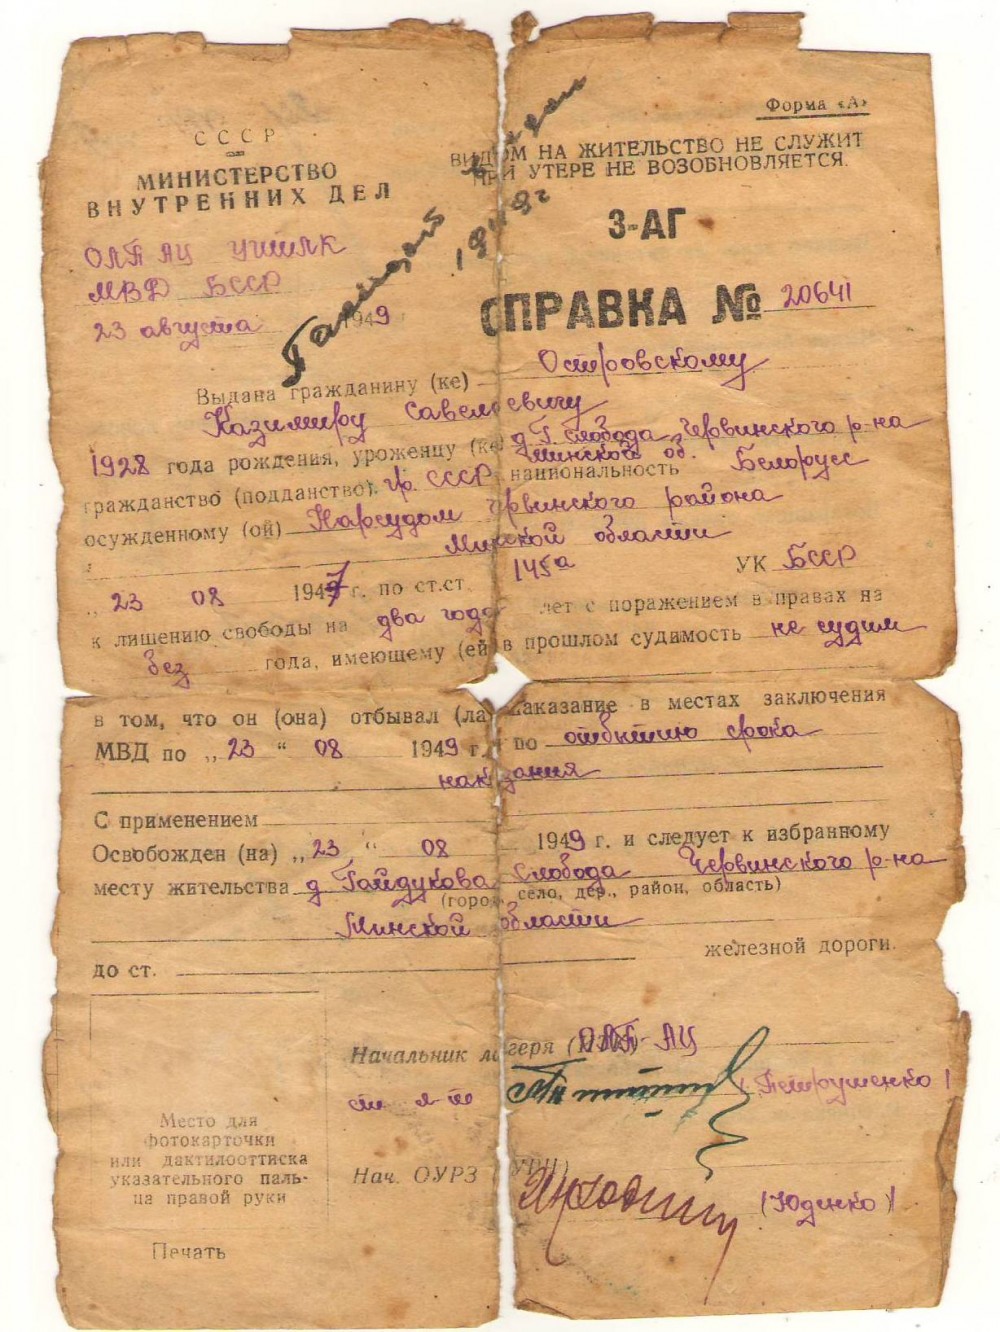 Форма «А»
СССР
МИНИСТЕРСТВО
ВНУТРЕННИХ ДЕЛ
ВИДОМ НА ЖИТЕЛЬСТВО НЕ СЛУЖИТ
ПРИ УТЕРЕ НЕ ВОЗОБНОВЛЯЕТСЯ.
Паспорт выдан
1949г
ОЛП АЦ УИТЛК
МВД БССР
23 августа 1949
3-АГ
СПРАВКА № 20641
Выдана гражданину (ке) Островскому
Казимиру Савельевичу
1928 года рождения, уроженцу (ке) д. Г. Слобода Червинского р-на
Минской об.
гражданство (подданство) гр. СССР национальность Белорусс
осужденному (ой) Нарсудом Червинского района
Минской области
„ 23 08 1947 г. по ст.ст. 145а УК БССР
к лишению свободы на два года лет с поражением в правах на
без года, имеющему (ей) в прошлом судимость не судим
в том, что он (она) отбывал (ла) наказание в местах заключения
МВД по „23“ 08 1949 г. по отбытию срока
наказания
С применением
Освобожден (на) „23“ 08 1949 г. и следует к избранному
месту жительства д Гайдукова Слобода Червинского р-на
(город, село, дер., район, область)
Минской области
до ст. железной дороги.
Начальник лагеря (ИТК) ОЛП-АЦ
ст л-т Петрушенко
Место для
фотокарточки
или дактилооттиска
указательного паль-
ца правой руки
Нач. ОУРЗ (УРЧ)
(Юденко)
Печать